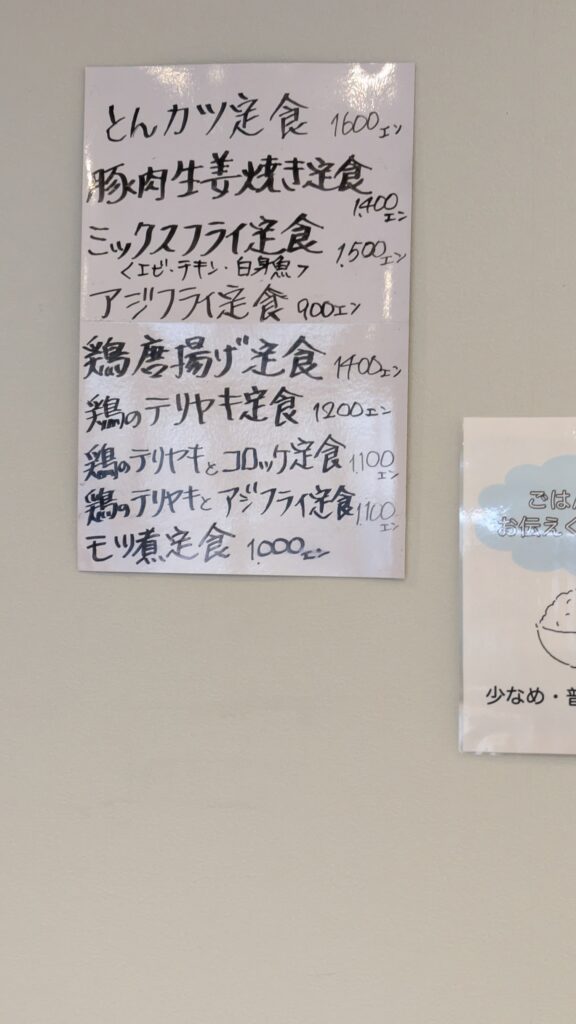 とんカツ定食 1600エン
豚肉生姜焼き定食
1,400エン
ミックスフライ定食 1,500エン
<エビ・チキン・白身魚>
アジフライ定食 900エン
鶏唐揚げ定食 1400エン
鶏のテリヤキ定食 1200エン
鶏のテリヤキとコロッケ定食 1,100エン
鶏のテリヤキとアジフライ定食 1,100エン
モツ煮定食 1,000エン
ごは
お伝えく
少なめ・普